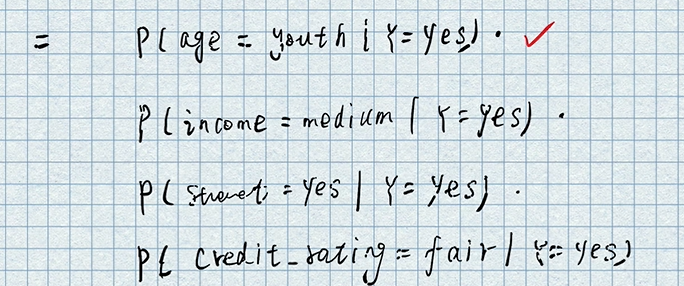 = P( age = youth | Y = Yes) ·
P( income = medium | Y = yes) ·
P( = Yes | Y = Yes) ·
P( credit_rating = fair | Y = yes)